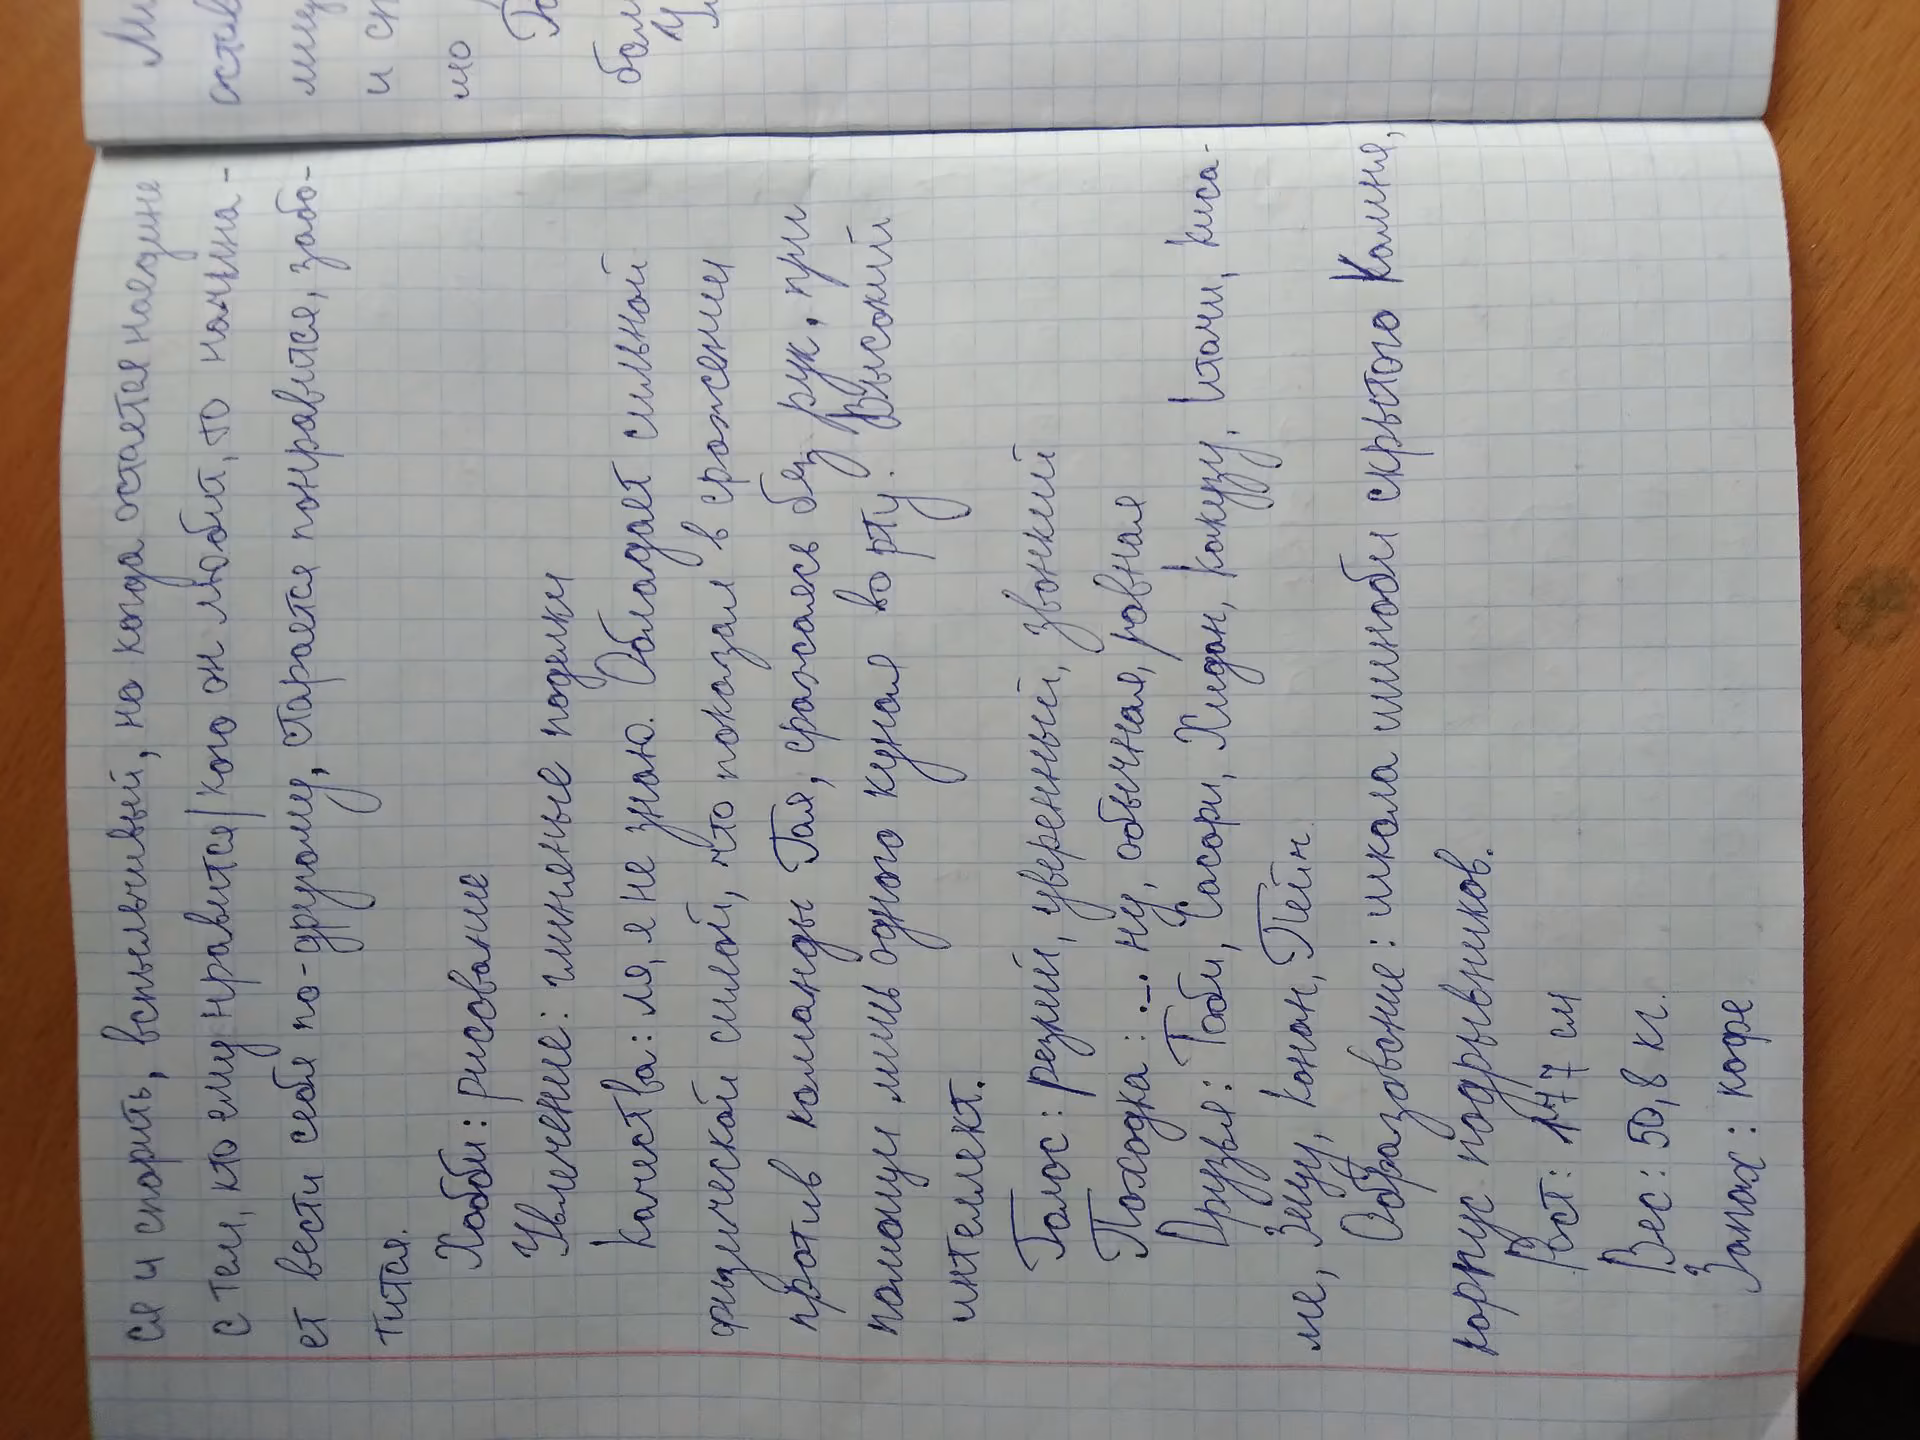 ся и спорить, вспыльчивый, но когда остаётся наедине
с тем, кто ему нравится/кого он любит, то начина-
ет вести себя по-другому, старается понравится, забо-
тится.
Хобби: рисование
Увлечение: глиненые поделки
Качества: ля, я не знаю. Обладает сильной
физической силой, что показал в сражении
против команды Гая, сражаясь без рук, при
помощи лишь одного куная во рту. Высокий
интеллект.
Голос: резкий, уверенный, звонкий
Походка: ... ну, обычная, ровная
Друзья: Тоби, Сасори, Хидан, Какузу, Итачи, Киса-
ме, Зецу, Конан, Пейн
Образование: школа шиноби скрытого Камня,
корпус подрывников.
Рост: 147 см
Вес: 50,8 кг.
Запах: кофе
Ми
остав
лицу
и сп
мо
бол